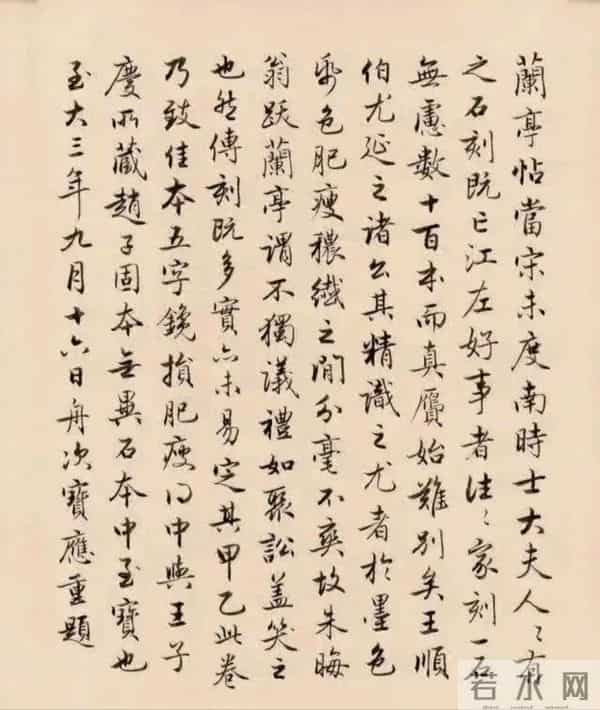 蘭亭帖當宋未度南時士大夫人〻有
之石刻既亡江左好事者往〻家刻一石
無慮數十百本而真贋始難別矣王順
伯尤延之諸公其精識之尤者於墨色
紙色肥瘦穠纖之間分毫不爽故朱晦
翁跋蘭亭謂不獨議禮如聚訟蓋笑之
也然傳刻既多實亦未易定其甲乙此卷
乃致佳本五字鑱損肥瘦得中與王子
慶所藏趙子固本無異石本中至寶也
至大三年九月十六日舟次寶應重題
若水网